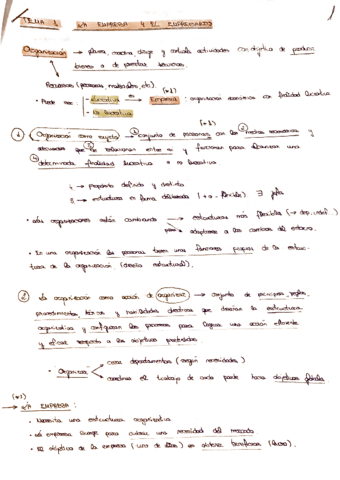 TEMA 1. LA EMPRESA Y EL EMPRESARIO
1
Organización → planea, reúne dirige y controla actividades con objetivo de producir
bienes o de prestar servicios.
Recursos (personas, materiales, etc).
(*1)
• Puede ser: - Lucrativa → Empresa: organización económica con finalidad lucrativa
- No lucrativa
(*2)
1 Organización como sujeto → conjunto de personas con los medios necesarios y
adecuados que se relacionan entre sí y funcionan para alcanzar una
determinada finalidad lucrativa o no lucrativa
4 → propósito definido y distinto
3 → estructura en forma deliberada (+ o - flexible) ∃ jefes
• Las organizaciones están cambiando → estructuras más flexibles
adaptarse a los cambios del entorno.
• En una organización las personas tienen unas funciones propias de la estruc-
tura de la organización (diseño estructural).
2 La organización como acción de organizar → conjunto de principios, reglas,
procedimientos, técnicas y habilidades directivas que diseñan la estructura
organizativa y configuran los procesos para lograr una acción eficiente
y eficaz respecto a los objetivos pretendidos.
• Organizar
crear departamentos (según necesidades)
coordina el trabajo de cada parte hacia objetivos
(*1)
→ LA EMPRESA:
• Necesita una estructura organizativa
• La empresa surge para cubrir una necesidad del mercado
• El objetivo de la empresa (uno de ellos) es obtener beneficios (lucro).